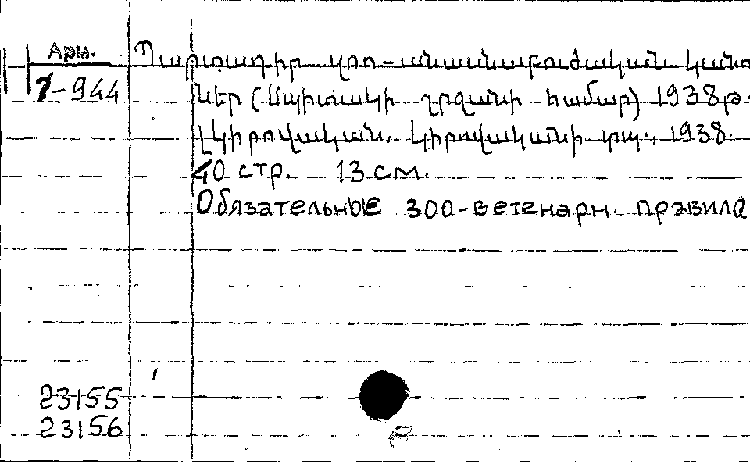 Арм.
7-944
Պարտադիր զոո-անասնաբուժական կանո
ներ (Սպիտակի շրջանի համար) 1938թ.
Կիրովական. Կիրովականի տպ., 1938.
40 стр. 13 см.
Обязательные зоо-ветенарн. правила
23155
23156